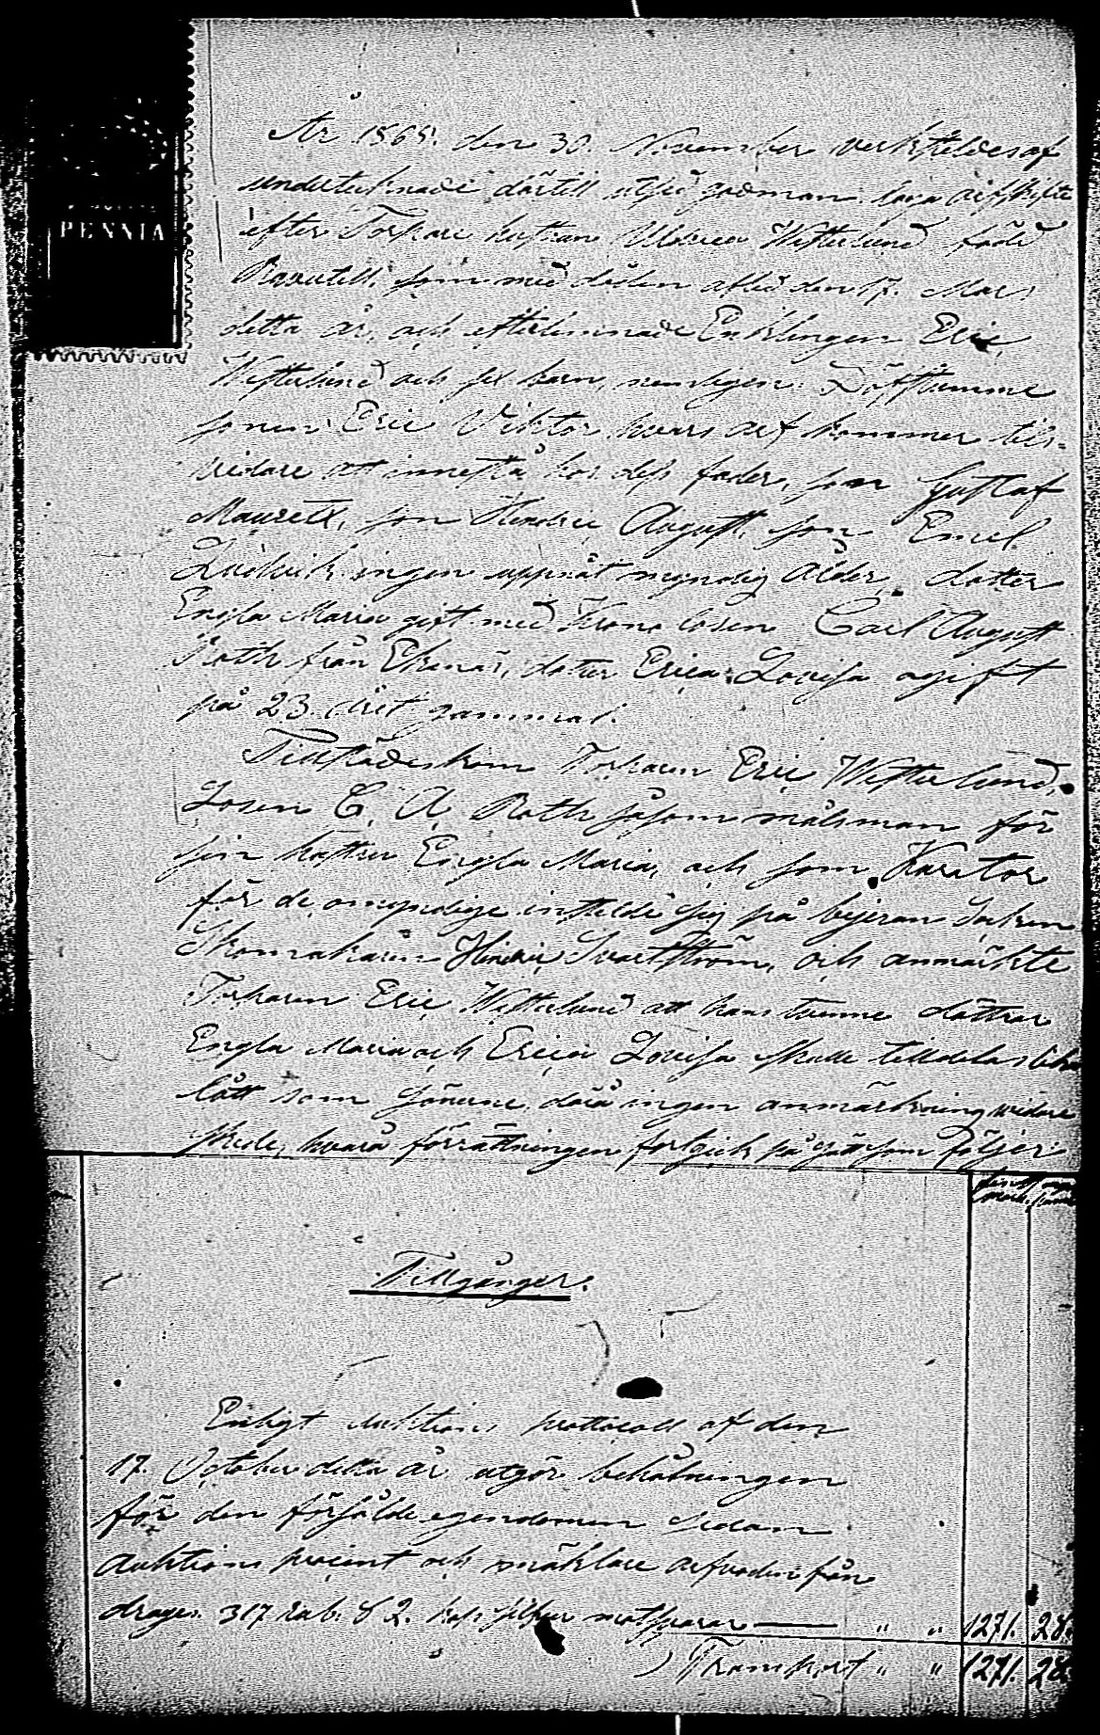 PENNIA
År 1865. den 30. November verkstäldes af
undertecknade därtill utsedd godman laga arfskifte
efter Torpare hustrun Ulrica Westerlund född
som med döden afled den 17. Mars
detta år, och efterlemnade Enklingen Eric
Westerlund och sex barn, nemligen: Döfstumme
sonen Eric Viktor hvars arf kommer tils-
vidare att innestå hos dess fader, son Gustaf
Mauretz, son Hendric August, son Emel
Ludvik ingen uppnåt myndig ålder, dotter
Engla Maria gift med Krono losen Carl August
Roth från Ekenäs, dotter Erica Lovisa ogift
på 23. året gammal.
Tillstädeskom Torparen Eric Westerlund,
Losen C. A. Roth såsom målsman för
sin hustru Engla Maria, och som Kurator
för de omyndige instelde sig på begeran
Skomakaren Hinric Svartström, och anmärkte
Torparen Eric Westerlund att hans tvenne döttrar
Engla Maria och Erica Lovisa skulle tilldelas lika
lått som sönerne, dårå ingen anmärkning widare
skede, hvarå förrättningen fortgick på sätt som följer:
Tillgånger.
Enligt Auktions protocoll af den
17. October detta år utgör behålningen
för den försålde egendomen sedan
Auktions procent och mäklare arfvoden från
drages 317 Rub. 82. kop. silfver motsvarar — " " 1271. 28.
Transport " " 1271. 28.